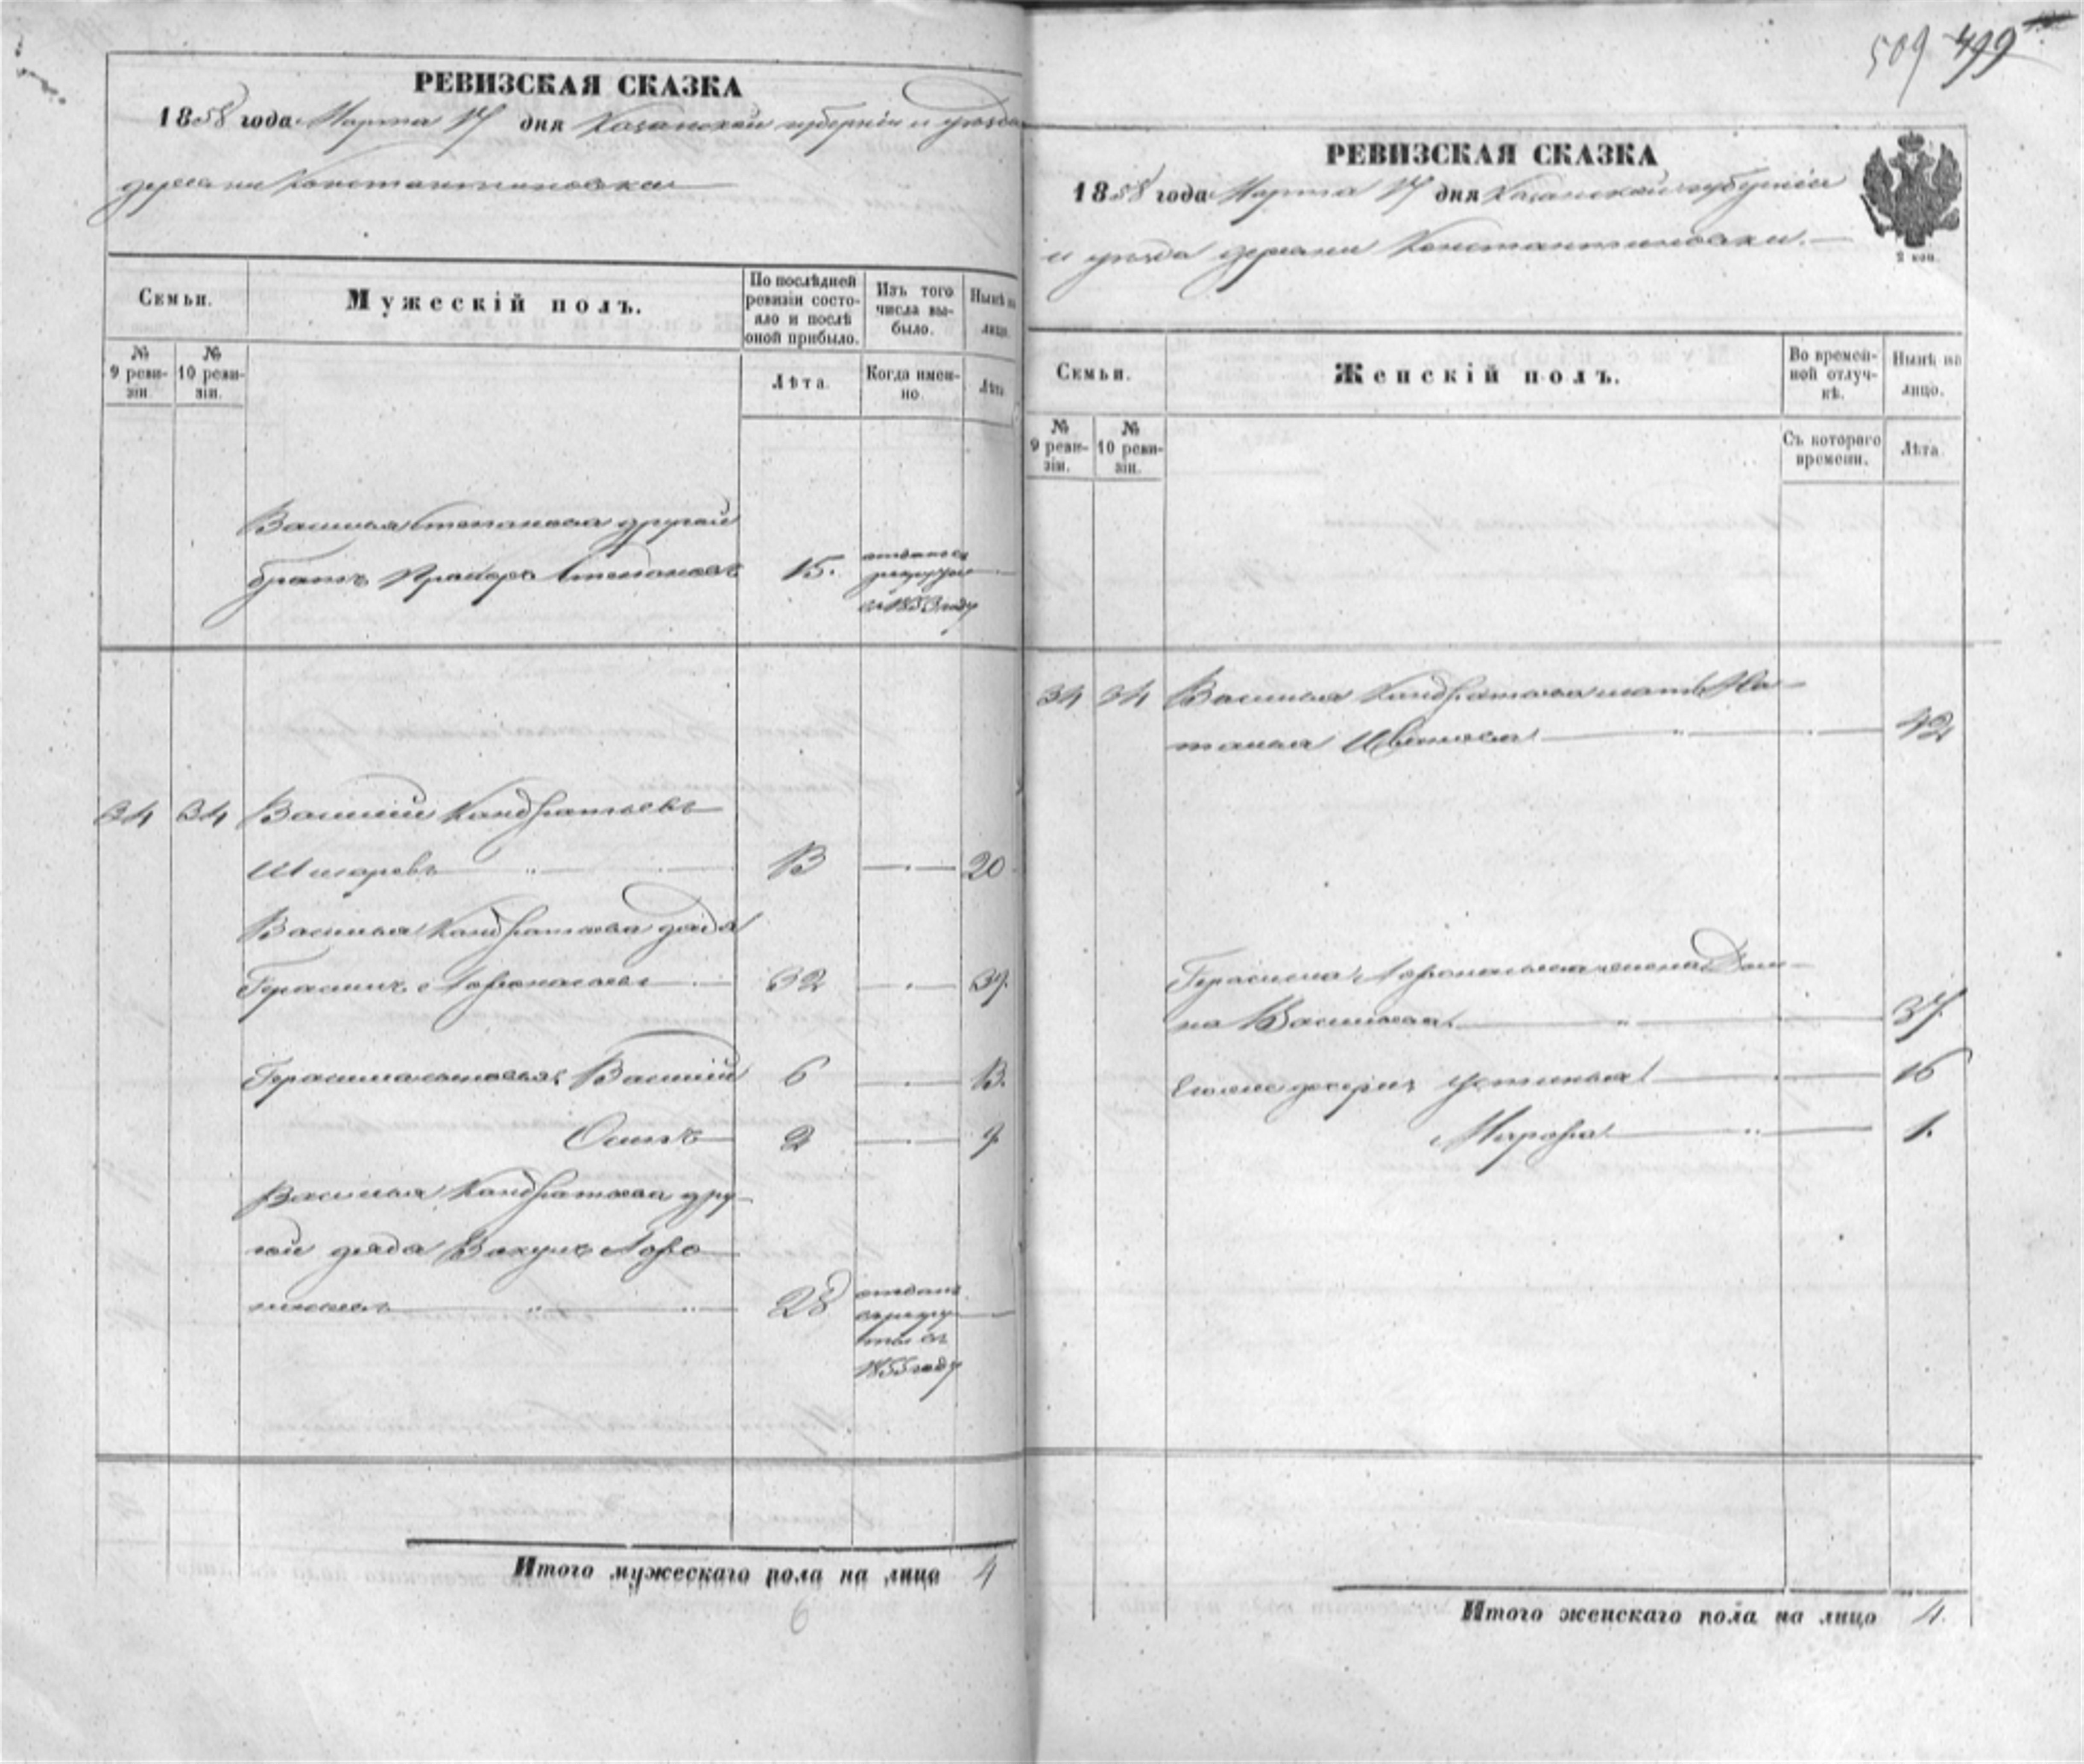 509 499
РЕВИЗСКАЯ СКАЗКА
1858 года Марта 17 дня Казанской губернии и уезда
деревни Константиновки
Семьи.
Мужескій полъ.
По послѣдней ревизіи состояло и послѣ оной прибыло.
Изъ того числа выбыло.
Нынѣ на лицо.
№ 9 ревизіи.
№ 10 ревизіи.
Лѣта.
Когда именно.
Лѣта
Василья Степанова другой
братъ Степановъ 15. рекруты въ 1853 году
34 34 Василий Кандратьевъ
13 20
Василья Кандратьева дядя
Герасимъ 32 39.
Герасима сыновья Василий 6 13.
Осипъ 2 9
Василья Кандратьева дру-
гой дядя Вакулъ Афо-
насьевъ 28 отданъ въ рекруты въ 1855 году
Итого мужескаго пола на лицо 4
6
РЕВИЗСКАЯ СКАЗКА
1858 года Марта 17 дня Казанской губернии
и уезда деревни Константиновки.
2 коп.
Семьи.
Женскій полъ.
Во временной отлучкѣ.
Нынѣ на лицо.
№ 9 ревизіи.
№ 10 ревизіи.
Съ котораго времени.
Лѣта
34 34 Василья Кандратьева мать На-
талья Иванова 42
Герасима жена Дом-
на Васильева 37.
дочери Устинья 16
Марфа 1.
Итого женскаго пола на лицо 4.